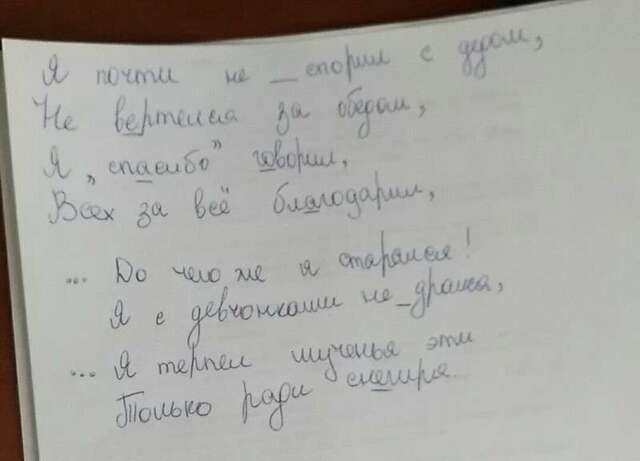 Я почти не _ спорил с дедом,
Не вертелся за обедом,
Я „спасибо" говорил,
Всех за всё благодарил,
... До чего же я старался!
Я с девчонками не_дрался,
... Я терпел мученья эти
Только ради снегиря.